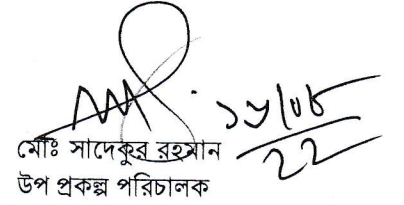 ১৮/০৮
22
মোঃ সাদেকুর রহমান
উপ প্রকল্প পরিচালক